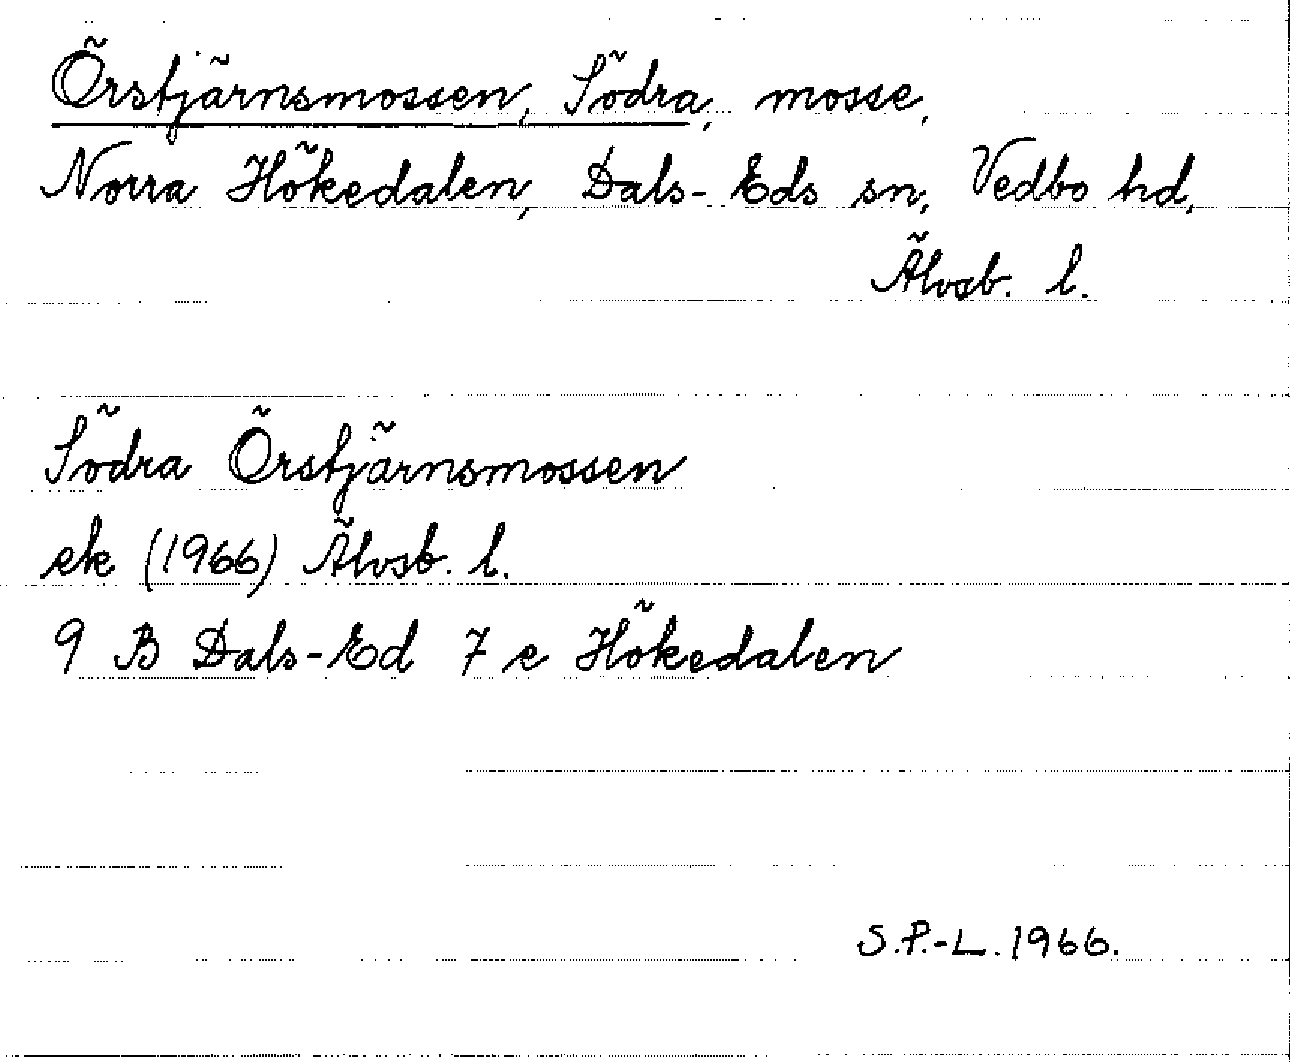 Örstjärnsmossen, Södra, mosse,
Norra Hökedalen, Dals-Eds sn, Vedbo hd,
Älvsb. l.
Södra Örstjärnsmossen
ek (1966) Älvsb. l.
9 B Dals-Ed 7 e Hökedalen
S.P.-L. 1966.